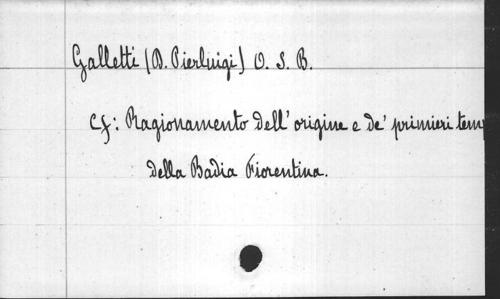 Galletti (D. Pierluigi) O. S. B.
Cf: Ragionamento dell' origine e de' primieri tem
della Badia Fiorentina.